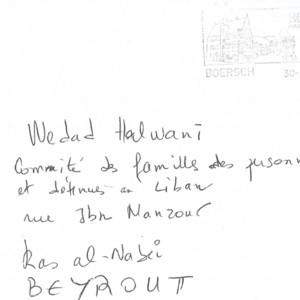 BOERSCH 30-
Wedad Halwani
Commité des familles des personn
et détenues en Liban
rue Ibn Manzour
Ras al-Nabii
BEYROUTH